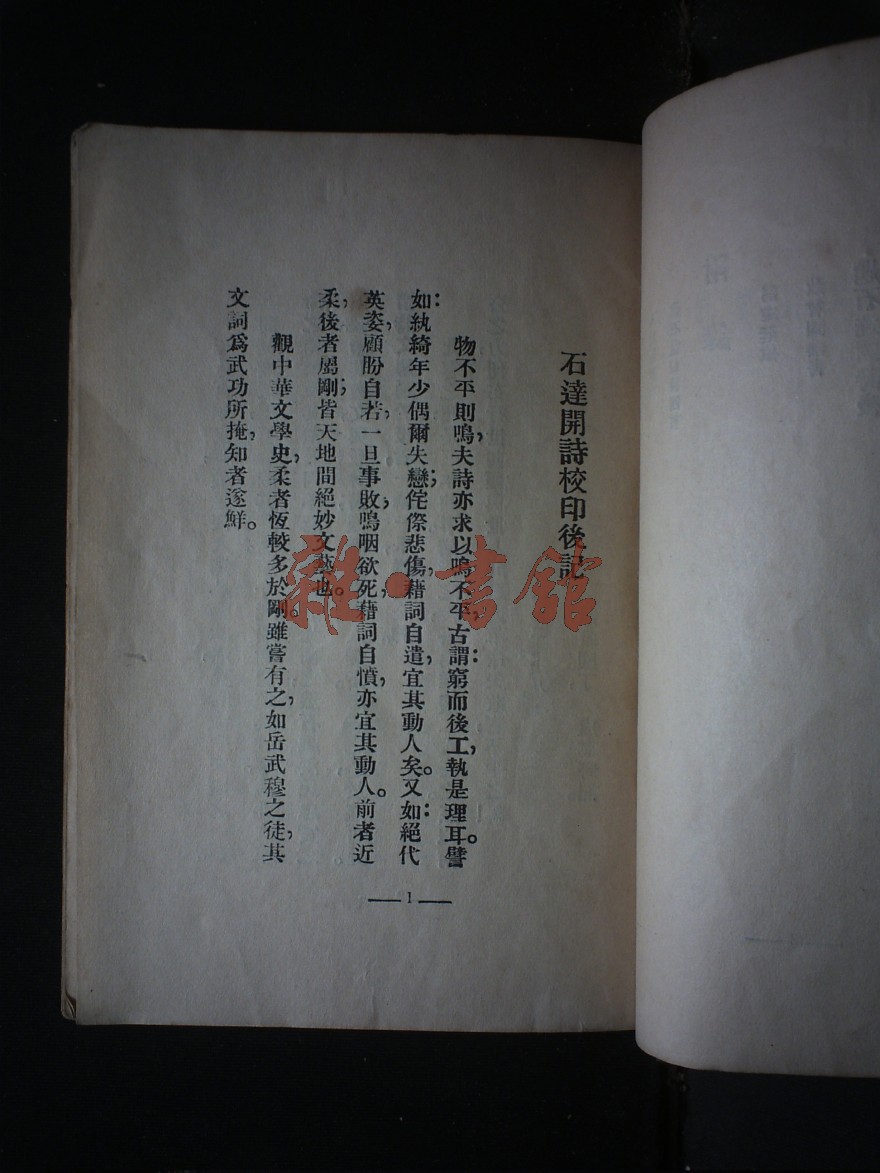 石達開詩校印後記
物不平則鳴，夫詩亦求以鳴不平，古謂：窮而後工，執是理耳。譬
如：紈綺年少偶爾失戀；侘傺悲傷，藉詞自遣，宜其動人矣。又如：絕代
英姿，顧盼自若，一旦事敗，鳴咽欲死，藉詞自憤，亦宜其動人。前者近
柔，後者屬剛；皆天地間絕妙文藝也。
觀中華文學史，柔者恆較多於剛。雖嘗有之，如岳武穆之徒，其
文詞爲武功所掩，知者遂鮮。
1
雜·書館